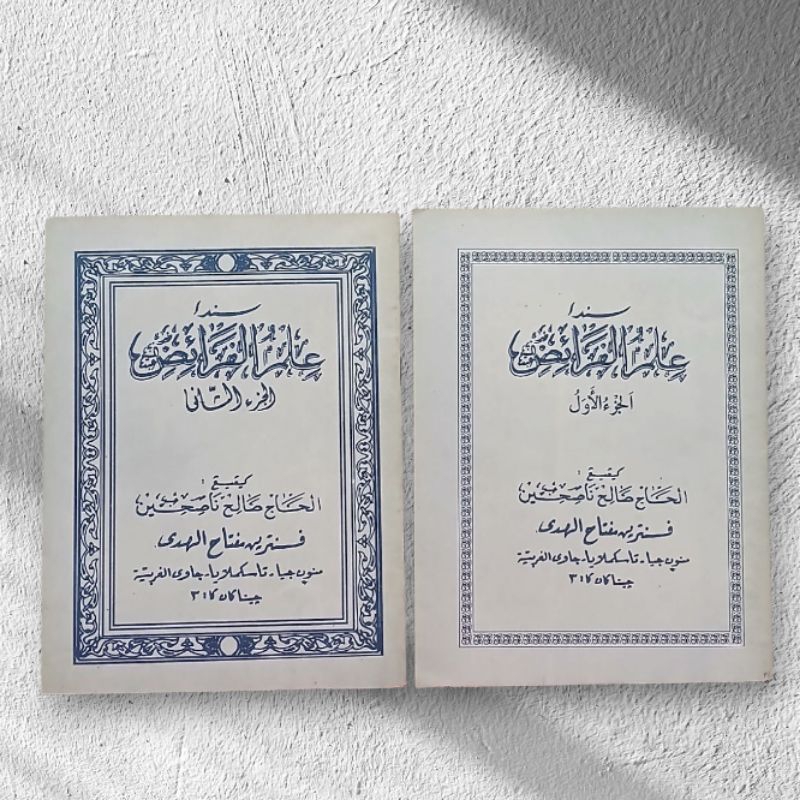 سندا
علم الفرائض
الجزء الأول
كيڠيڠ :
الحاج صالح ناصحين
فسنترين مفتاح الهدى
منون جيا - تاسكملايا - جاوى الغربية
چيتاكان كا : ٣
سندا
علم الفرائض
الجزء الثانى
كيڠيڠ :
الحاج صالح ناصحين
فسنترين مفتاح الهدى.
منون جيا - تاسكملايا - جاوى الغربية
چيتاكان كا : ٣